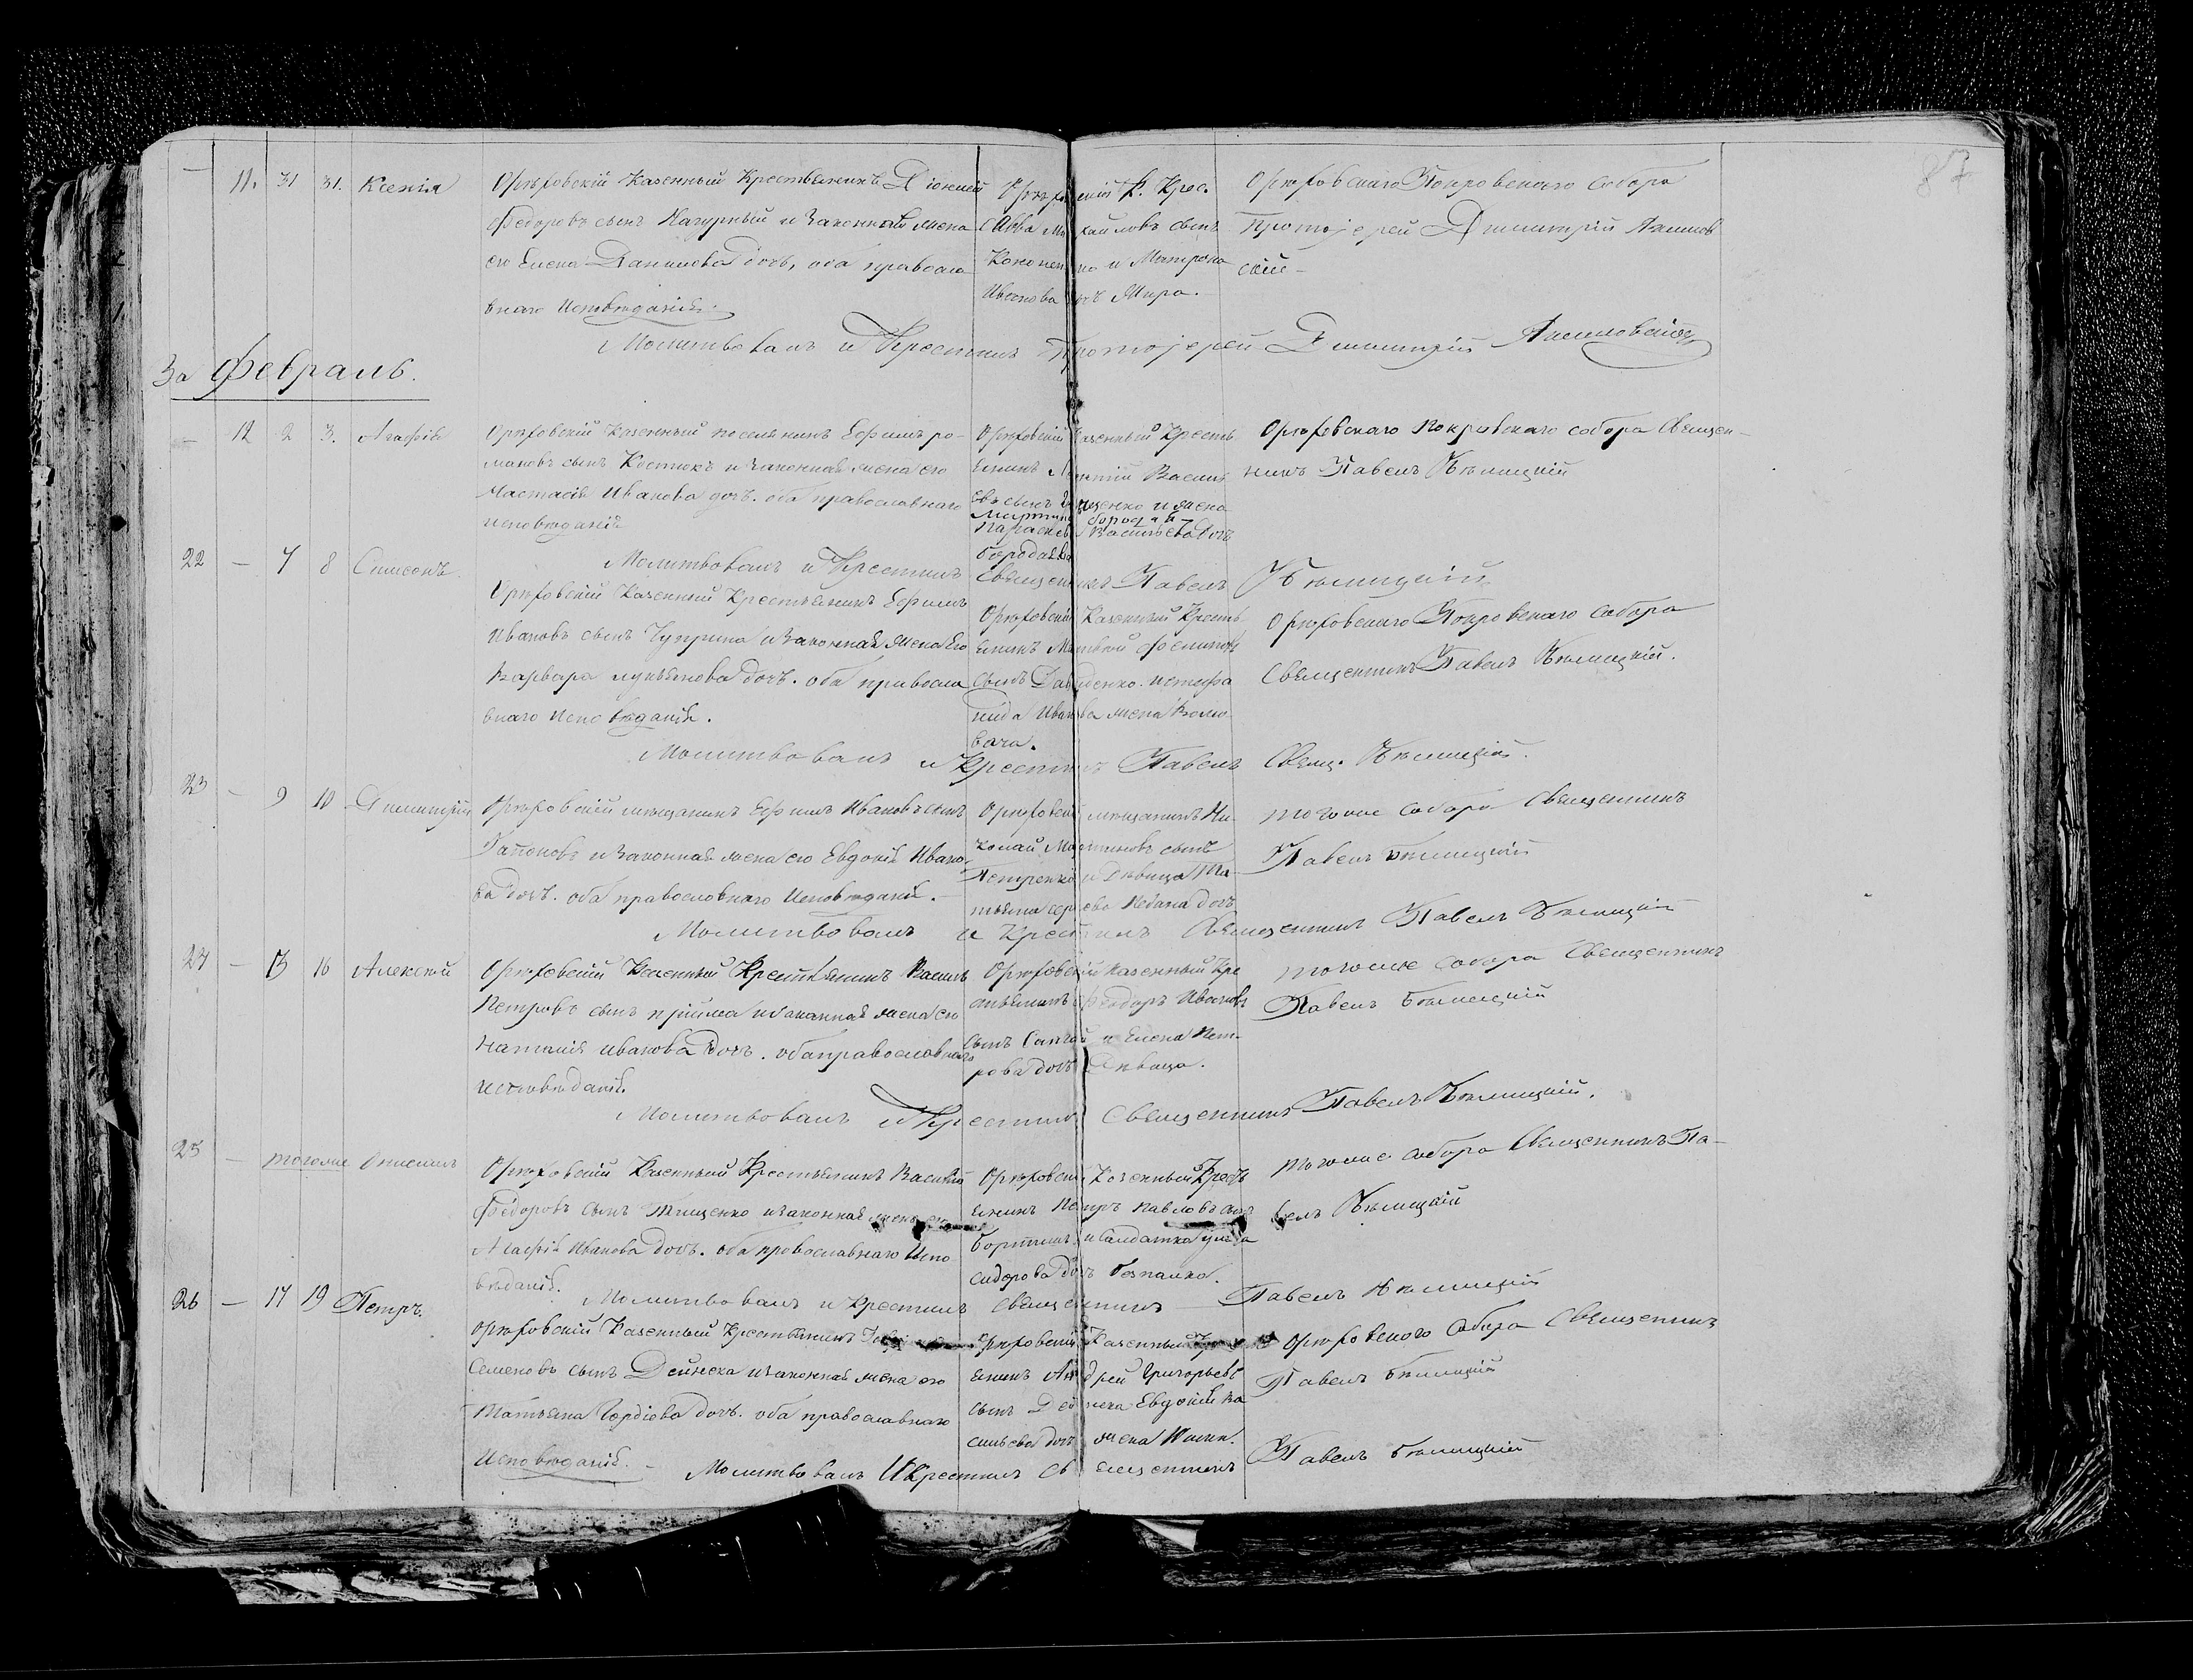 87
— 11. 31 31. Ксенія
Орѣховскій Казенный Крестьянинъ Діонисій
Федоровъ сынъ Нагурный и Законная жена
его Елена Данилова дочь, оба правосла
внаго Исповѣданія.
Орѣховскій К. Крес.
Савва Михайловъ сынъ
Кононенко и Матрона
Иванова дочь Мира.
Орѣховскаго Покровскаго собора
Протоіерей Димитрій Акимов
скій —
Молитвовалъ и Крестилъ Протоіерей Димитрій Акимовскій
За Февраль.
— 12 2 3. Агафія
Орѣховскій Казенный поселянинъ Ефимъ Ро-
мановъ сынъ Костюкъ и законная жена его
Настасія Иванова дочь. оба православнаго
исповѣданія
Орѣховскій Казенный Кресть
янинъ Василь
евъ сынъ и жена
Васильева дочь
Орѣховскаго Покровскаго собора Священ—
никъ Павелъ Бѣлицкій
Молитвовалъ и Крестилъ Священникъ Павелъ Бѣлицкій.
22 — 7 8 Симеонъ
Орѣховскій Казенный Крестьянинъ Ефимъ
Ивановъ сынъ Чуприна и Законная жена его
Варвара Лукьянова дочь. оба правосла
внаго Исповѣданія.
Орѣховскій Казенный Кресть
янинъ Матвей
сынъ Давиденко. и Стефа
нида Иванова жена
Орѣховскаго Покровскаго собора
Священникъ Павелъ Бѣлицкій.
Молитвовалъ и Крестилъ Павелъ Свящ. Бѣлицкій.
23 — 9 10 Димитрій
Орѣховскій мѣщанинъ Ефимъ Ивановъ сынъ
Гапоновъ и Законная жена его Евдокія Ивано-
ва дочь. оба православнаго Исповѣданія.—
Орѣховскій мѣщанинъ Ни-
колай Мартиновъ сынъ
Петренко и Дѣвица Та-
тьяна дочь
тогоже собора Священникъ
Павелъ Бѣлицкій
Молитвовалъ и Крестилъ Священникъ Павелъ Бѣлицкій
24 — 13 16 Алексѣй
Орѣховскій Казенный Крестьянинъ Василь
Петровъ сынъ Прійма и Законная жена его
Наталія Иванова дочь. оба православнаго
исповѣданія.
Орѣховскій Казенный Кре
стьянинъ Феодоръ Ивановъ
сынъ и Елена Пет-
рова дочь Дѣвица.
тогоже собора Священникъ
Павелъ Бѣлицкій
Молитвовалъ и Крестилъ Священникъ Павелъ Бѣлицкій.
25 — тогоже Онисимъ
Орѣховскій Казенный Крестьянинъ Василій
Федоровъ сынъ Тищенко и законная жена его
Агафія Иванова дочь. оба православнаго Испо
вѣданія.
Орѣховскій Казенный Кресть
янинъ Петръ Павловъ сынъ
и Салдатка
Сидорова дочь
тогоже собора Священникъ Па—
велъ Бѣлицкій
Молитвовалъ и Крестилъ Священникъ Павелъ Бѣлицкій
26 — 17 19 Петръ.
Орѣховскій Казенный Крестьянинъ
Семеновъ сынъ Дейнека и законная жена его
Татьяна Гордіева дочь. оба православнаго
Исповѣданія. —
Орѣховскій Казенный
янинъ Андрей Григорьевъ
сынъ Дейнека Евдокія Ва
сильева дочь жена
Орѣховскаго Собора Священникъ
Павелъ Бѣлицкій
Молитвовалъ и Крестилъ Священникъ Павелъ Бѣлицкій